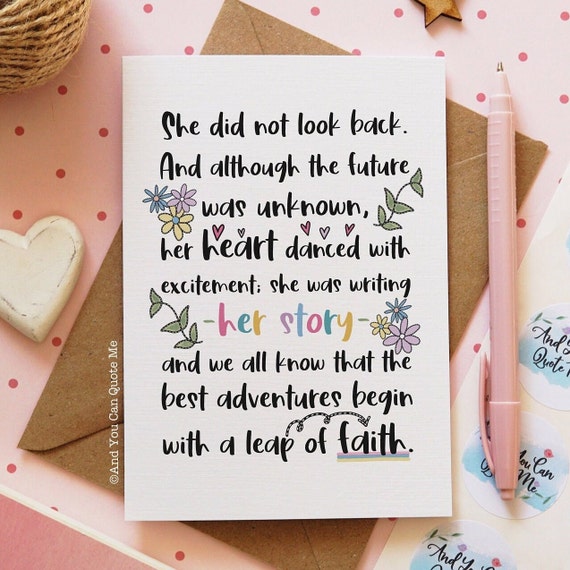 She did not look back.
And although the future
was unknown,
her heart danced with
excitement; she was writing
-her story-
and we all know that the
best adventures begin
with a leap of faith.
©And You Can Quote Me
And You
Quote
You Can
Me
And Yo